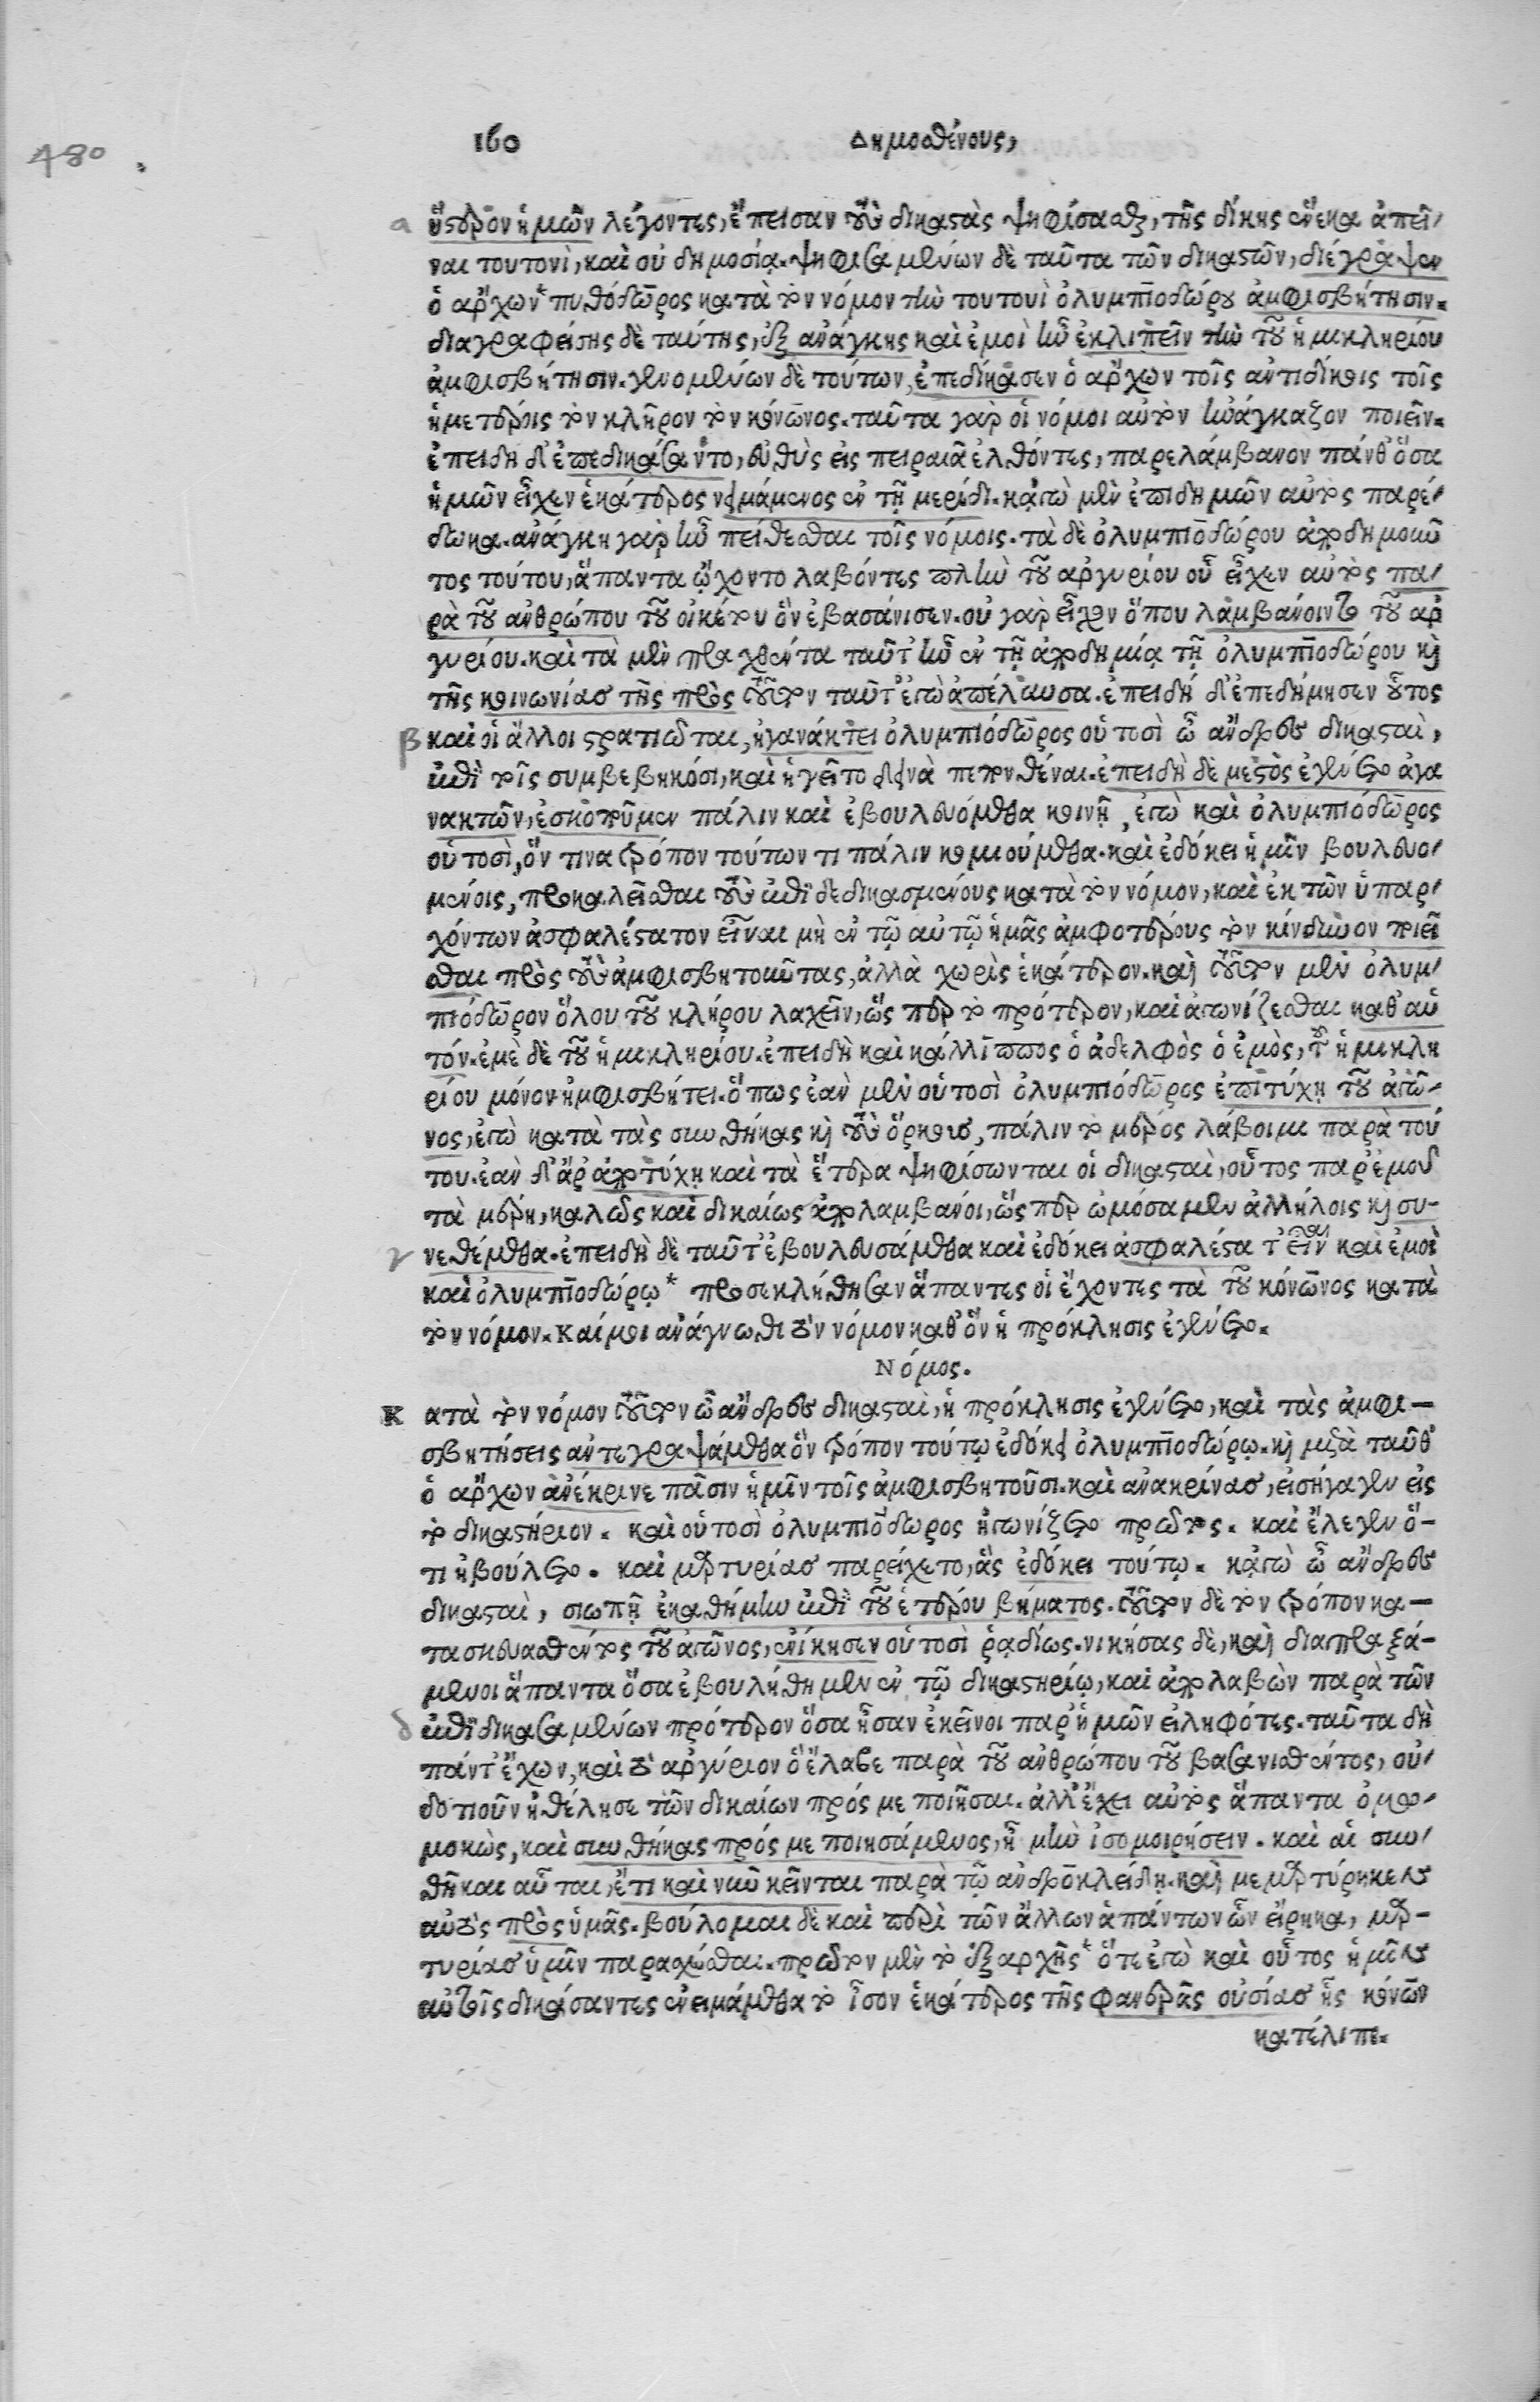 480
160 Δημοσθένους,
α ὕστερον ἡμῶν λέγοντες, ἔπεισαν τοὺς δικαστὰς ψηφίσασθαι, τῆς δίκης ἕνεκα ἀπεῖ-
ναι τουτονὶ, καὶ οὐ δημοσίᾳ. ψηφισαμένων δὲ ταῦτα τῶν δικαστῶν, διέγραψεν
ὁ ἄρχων* πυθόδωρος κατὰ τὸν νόμον τὴν τουτουὶ ὀλυμπιοδώρου ἀμφισβήτησιν.
διαγραφείσης δὲ ταύτης, ἐξ ἀνάγκης καὶ ἐμοὶ ἦν ἐκλιπεῖν τὴν τοῦ ἡμικληρίου
ἀμφισβήτησιν. γενομένων δὲ τούτων, ἐπεδίκασεν ὁ ἄρχων τοῖς ἀντιδίκοις τοῖς
ἡμετέροις τὸν κλῆρον τὸν κόνωνος. ταῦτα γὰρ οἱ νόμοι αὐτὸν ἠνάγκαζον ποιεῖν.
ἐπειδὴ δ' ἐπεδικάσαντο, εὐθὺς εἰς πειραιᾶ ἐλθόντες, παρελάμβανον πάνθ' ὅσα
ἡμῶν εἶχεν ἑκάτερος νειμάμενος ἐν τῇ μερίδι. κᾀγὼ μὲν ἐπιδημῶν αὐτὸς παρέ-
δωκα. ἀνάγκη γὰρ ἦν πείθεσθαι τοῖς νόμοις. τὰ δὲ ὀλυμπιοδώρου ἀποδημοῦν
τος τούτου, ἅπαντα ᾤχοντο λαβόντες πλὴν τοῦ ἀργυρίου οὗ εἶχεν αὐτὸς πα-
ρὰ τοῦ ἀνθρώπου τοῦ οἰκέτου ὃν ἐβασάνισεν. οὐ γὰρ εἶχον ὅπου λαμβάνοιντο τοῦ ἀρ
γυρίου. καὶ τὰ μὲν πραχθέντα ταῦτ' ἦν ἐν τῇ ἀποδημίᾳ τῇ ὀλυμπιοδώρου καὶ
τῆς κοινωνίας τῆς πρὸς τοῦτον ταῦτ' ἐγὼ ἀπέλαυσα. ἐπειδὴ δ' ἐπεδήμησεν οὗτος
β καὶ οἱ ἄλλοι στρατιῶται, ἠγανάκτει ὀλυμπιόδωρος οὑτοσὶ ὦ ἄνδρες δικασταὶ,
ἐπὶ τοῖς συμβεβηκόσι, καὶ ἡγεῖτο δεινὰ πεπονθέναι. ἐπειδὴ δὲ μεστὸς ἐγένετο ἀγα
νακτῶν, ἐσκοποῦμεν πάλιν καὶ ἐβουλευόμεθα κοινῇ, ἐγὼ καὶ ὀλυμπιόδωρος
οὑτοσὶ, ὅν τινα τρόπον τούτων τι πάλιν κομιούμεθα. καὶ ἐδόκει ἡμῖν βουλευο-
μένοις, προκαλεῖσθαι τοὺς ἐπιδεδικασμένους κατὰ τὸν νόμον, καὶ ἐκ τῶν ὑπαρ-
χόντων ἀσφαλέστατον εἶναι μὴ ἐν τῷ αὐτῷ ἡμᾶς ἀμφοτέρους τὸν κίνδυνον ποιεῖ
σθαι πρὸς τοὺς ἀμφισβητοῦντας, ἀλλὰ χωρὶς ἑκάτερον. καὶ τοῦτον μὲν ὀλυμ-
πιόδωρον ὅλου τοῦ κλήρου λαχεῖν, ὥς περ τὸ πρότερον, καὶ ἀγωνίζεσθαι καθ' αὑ
τόν. ἐμὲ δὲ τοῦ ἡμικληρίου. ἐπειδὴ καὶ κάλλιππος ὁ ἀδελφὸς ὁ ἐμὸς, τοῦ ἡμικλη
ρίου μόνον ἠμφισβήτει. ὅπως ἐὰν μὲν οὑτοσὶ ὀλυμπιόδωρος ἐπιτύχῃ τοῦ ἀγῶ-
νος, ἐγὼ κατὰ τὰς συνθήκας καὶ τοὺς ὅρκους, πάλιν τὸ μέρος λάβοιμι παρὰ τού
του. ἐὰν δ' ἄρ' ἀποτύχῃ καὶ τὰ ἕτερα ψηφίσωνται οἱ δικασταὶ, οὗτος παρ' ἐμοῦ
τὰ μέρη, καλῶς καὶ δικαίως ἀπολαμβάνοι, ὥς περ ὠμόσαμεν ἀλλήλοις καὶ συ-
γ νεθέμεθα. ἐπειδὴ δὲ ταῦτ' ἐβουλευσάμεθα καὶ ἐδόκει ἀσφαλέστατ' εἶναι καὶ ἐμοὶ
καὶ ὀλυμπιοδώρῳ* προσεκλήθησαν ἅπαντες οἱ ἔχοντες τὰ τοῦ κόνωνος κατὰ
τὸν νόμον. Καί μοι ἀνάγνωθι τὸν νόμον καθ' ὃν ἡ πρόκλησις ἐγένετο.
Νόμος.
Κ ατὰ τὸν νόμον τοῦτον ὦ ἄνδρες δικασταὶ, ἡ πρόκλησις ἐγένετο, καὶ τὰς ἀμφι-
σβητήσεις ἀντεγραψάμεθα ὃν τρόπον τούτῳ ἐδόκει ὀλυμπιοδώρῳ. καὶ μετὰ ταῦθ'
ὁ ἄρχων ἀνέκρινε πᾶσιν ἡμῖν τοῖς ἀμφισβητοῦσι. καὶ ἀνακρίνας, εἰσήγαγεν εἰς
τὸ δικαστήριον. καὶ οὑτοσὶ ὀλυμπιόδωρος ἠγωνίζετο πρῶτος. καὶ ἔλεγεν ὅ-
τι ἠβούλετο. καὶ μαρτυρίας παρείχετο, ἃς ἐδόκει τούτῳ. κᾀγὼ ὦ ἄνδρες
δικασταὶ, σιωπῇ ἐκαθήμην ἐπὶ τοῦ ἑτέρου βήματος. τοῦτον δὲ τὸν τρόπον κα-
τασκευασθέντος τοῦ ἀγῶνος, ἐνίκησεν οὑτοσὶ ῥᾳδίως. νικήσας δὲ, καὶ διαπραξά-
μενοι ἅπαντα ὅσα ἐβουλήθημεν ἐν τῷ δικαστηρίῳ, καὶ ἀπολαβὼν παρὰ τῶν
δ ἐπιδικασαμένων πρότερον ὅσα ἦσαν ἐκεῖνοι παρ' ἡμῶν εἰληφότες. ταῦτα δὴ
πάντ' ἔχων, καὶ τὸ ἀργύριον ὃ ἔλαβε παρὰ τοῦ ἀνθρώπου τοῦ βασανισθέντος, οὐ-
δοτιοῦν ἠθέλησε τῶν δικαίων πρός με ποιῆσαι. ἀλλ' ἔχει αὐτὸς ἅπαντα ὀμω-
μοκὼς, καὶ συνθήκας πρός με ποιησάμενος, ἦ μὴν ἰσομοιρήσειν. καὶ αἱ συν-
θῆκαι αὗται, ἔτι καὶ νῦν κεῖνται παρὰ τῷ ἀνδροκλείδῃ. καὶ μεμαρτύρηκεν
αὐτὸς πρὸς ὑμᾶς. βούλομαι δὲ καὶ περὶ τῶν ἄλλων ἁπάντων ὧν εἴρηκα, μαρ-
τυρίας ὑμῖν παρασχέσθαι. πρῶτον μὲν τὸ ἐξ ἀρχῆς* ὅτε ἐγὼ καὶ οὗτος ἡμῖν
αὐτοῖς δικάσαντες ἐνειμάμεθα τὸ ἴσον ἑκάτερος τῆς φανερᾶς οὐσίας ἧς κόνων
κατέλιπε.